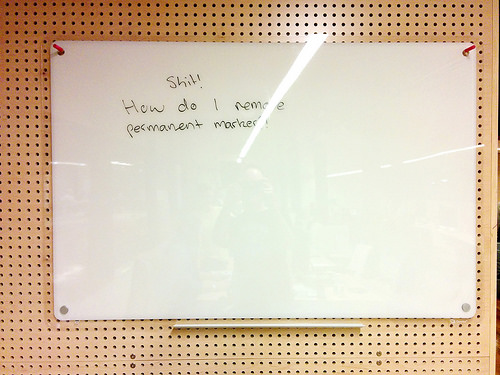 Shit!
How do I remove
permanent marker?!